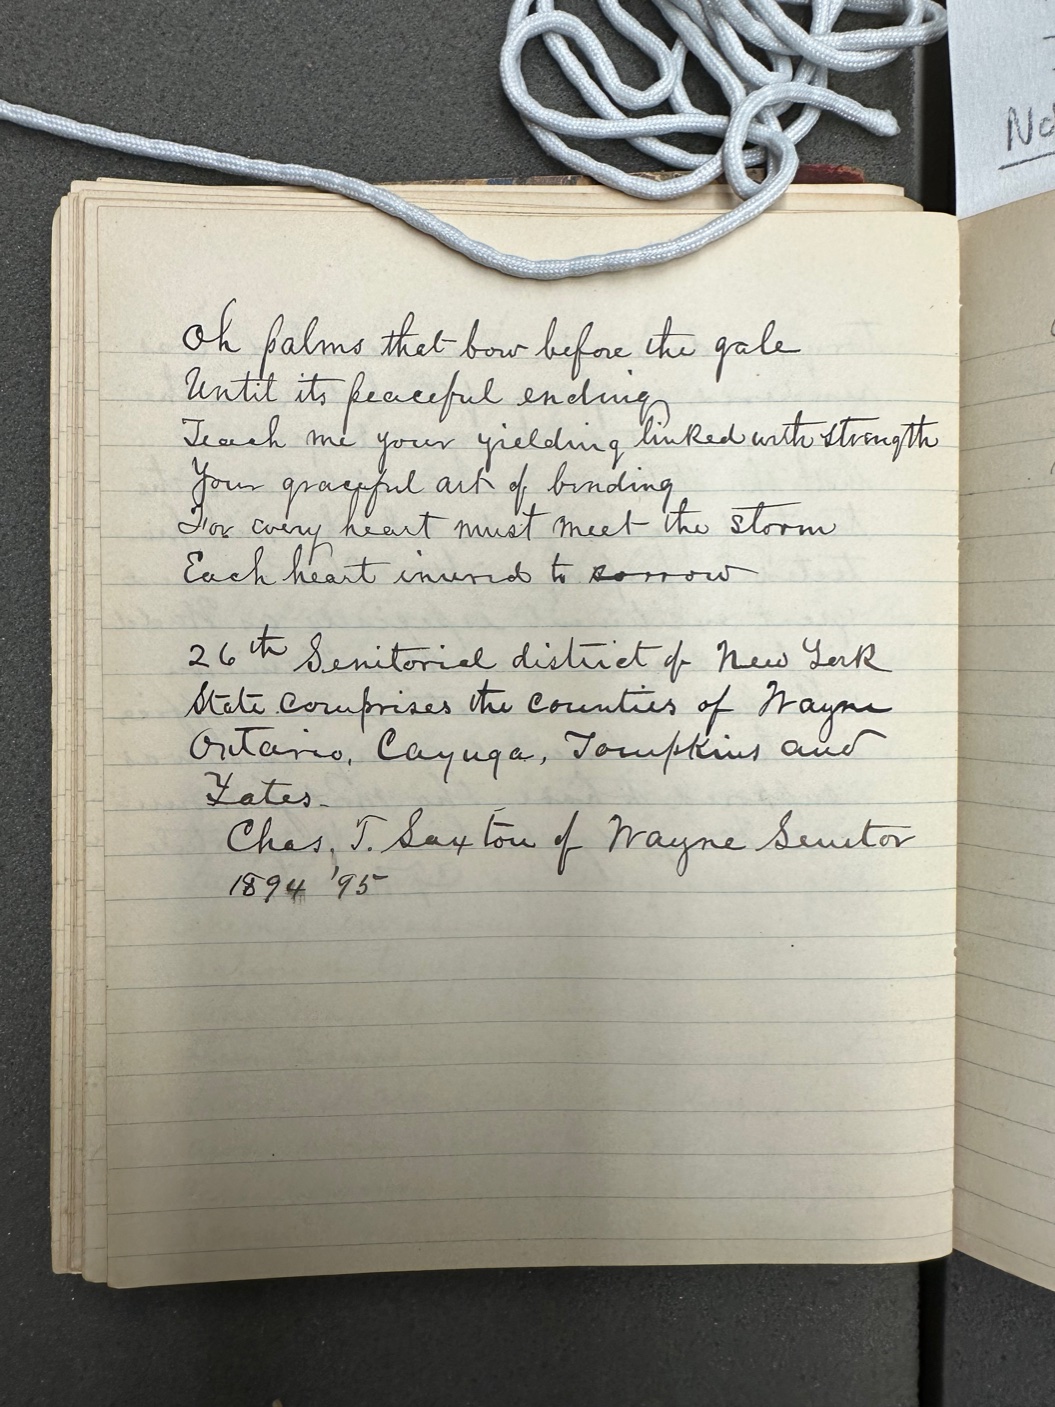 Oh palms that bow before the gale
Until its peaceful ending
Teach me your yielding linked with strength
Your graceful art of bending
For every heart must meet the storm
Each heart inured to sorrow
26th Senitorial district of New York
State comprises the counties of Wayne
Ontario, Cayuga, Tompkins and
Yates.
Chas. T. Saxton of Wayne Senitor
1894 '95